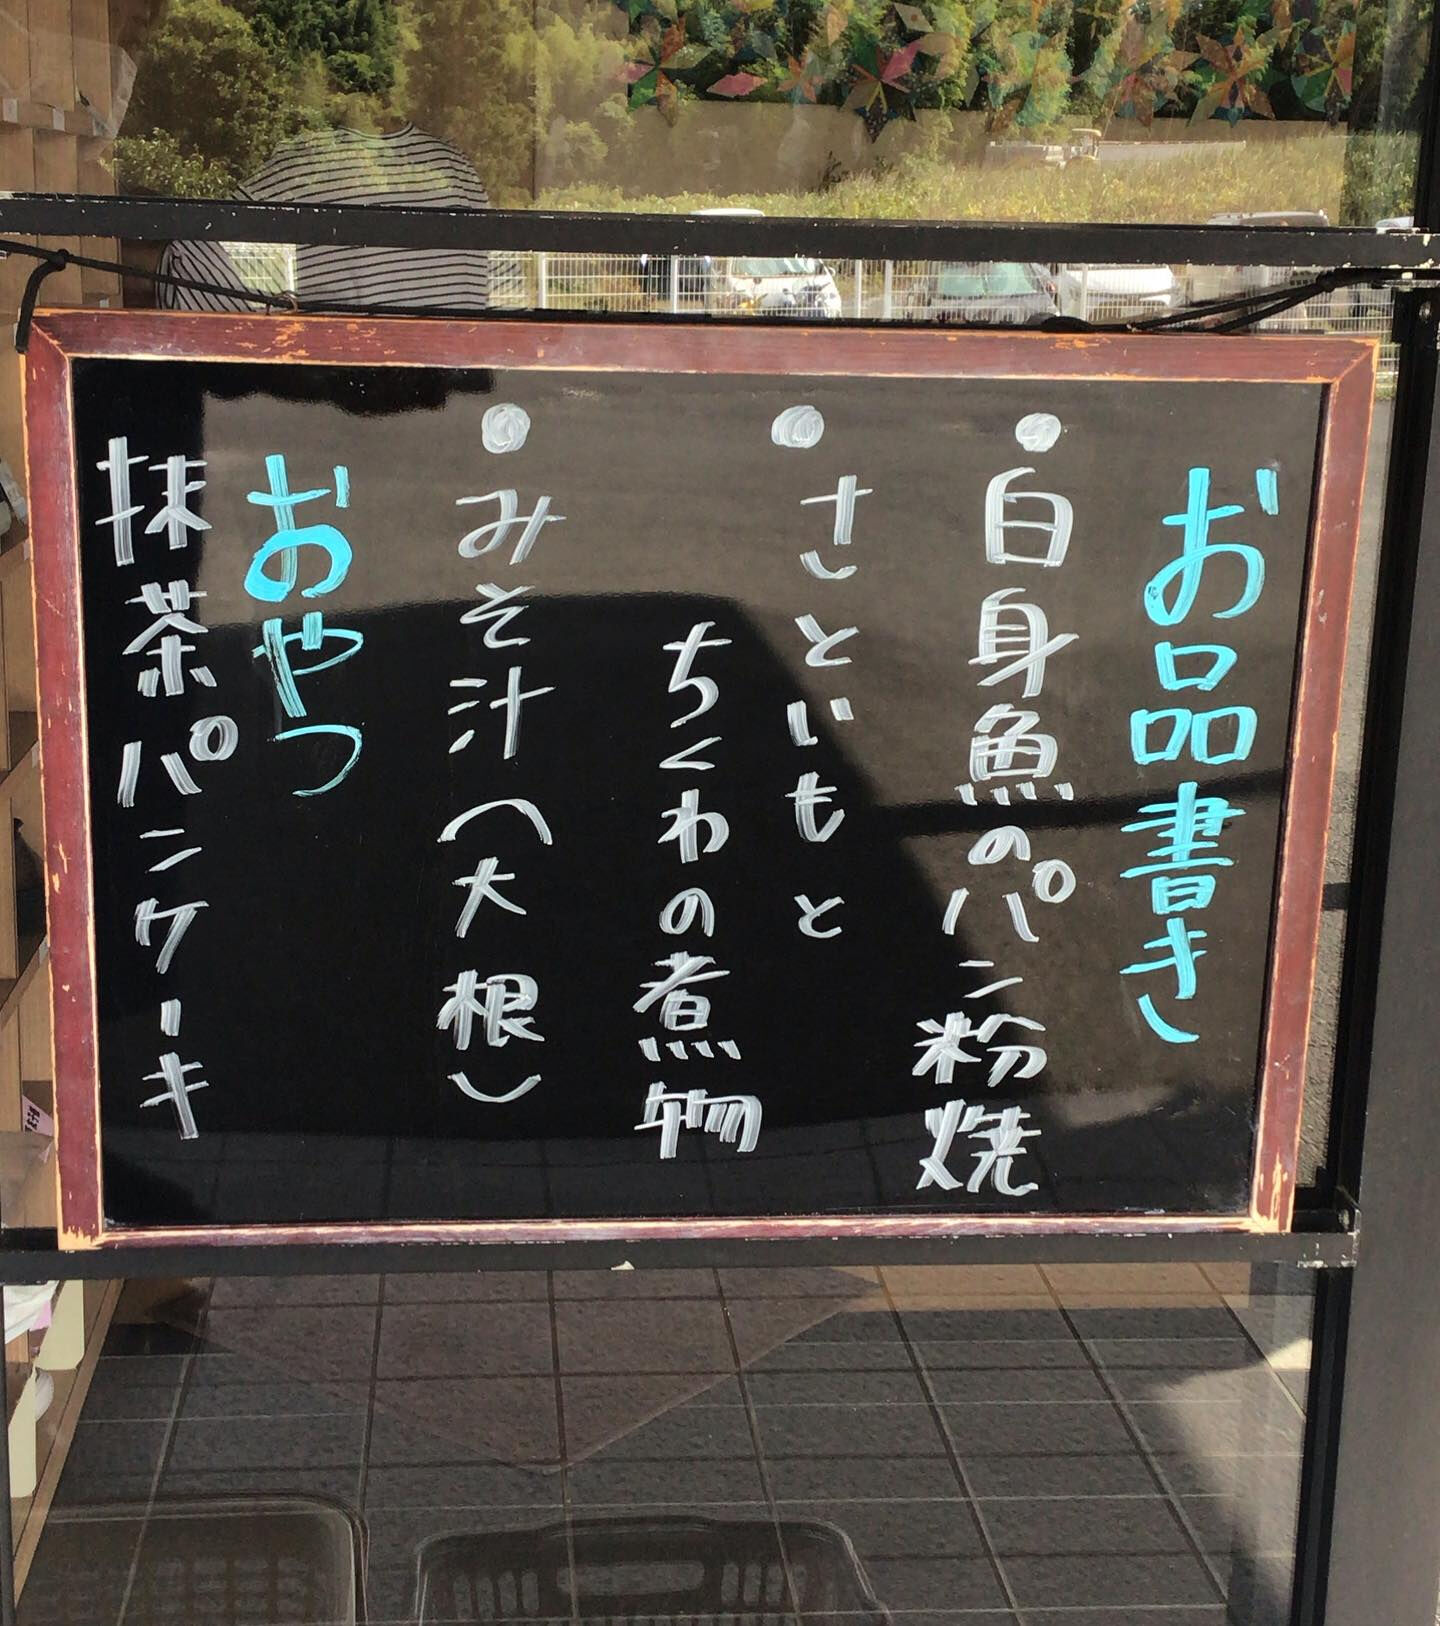 お品書き
●白身魚のパン粉焼
●さといもと
ちくわの煮物
●みそ汁(大根)
おやつ
抹茶パンケーキ